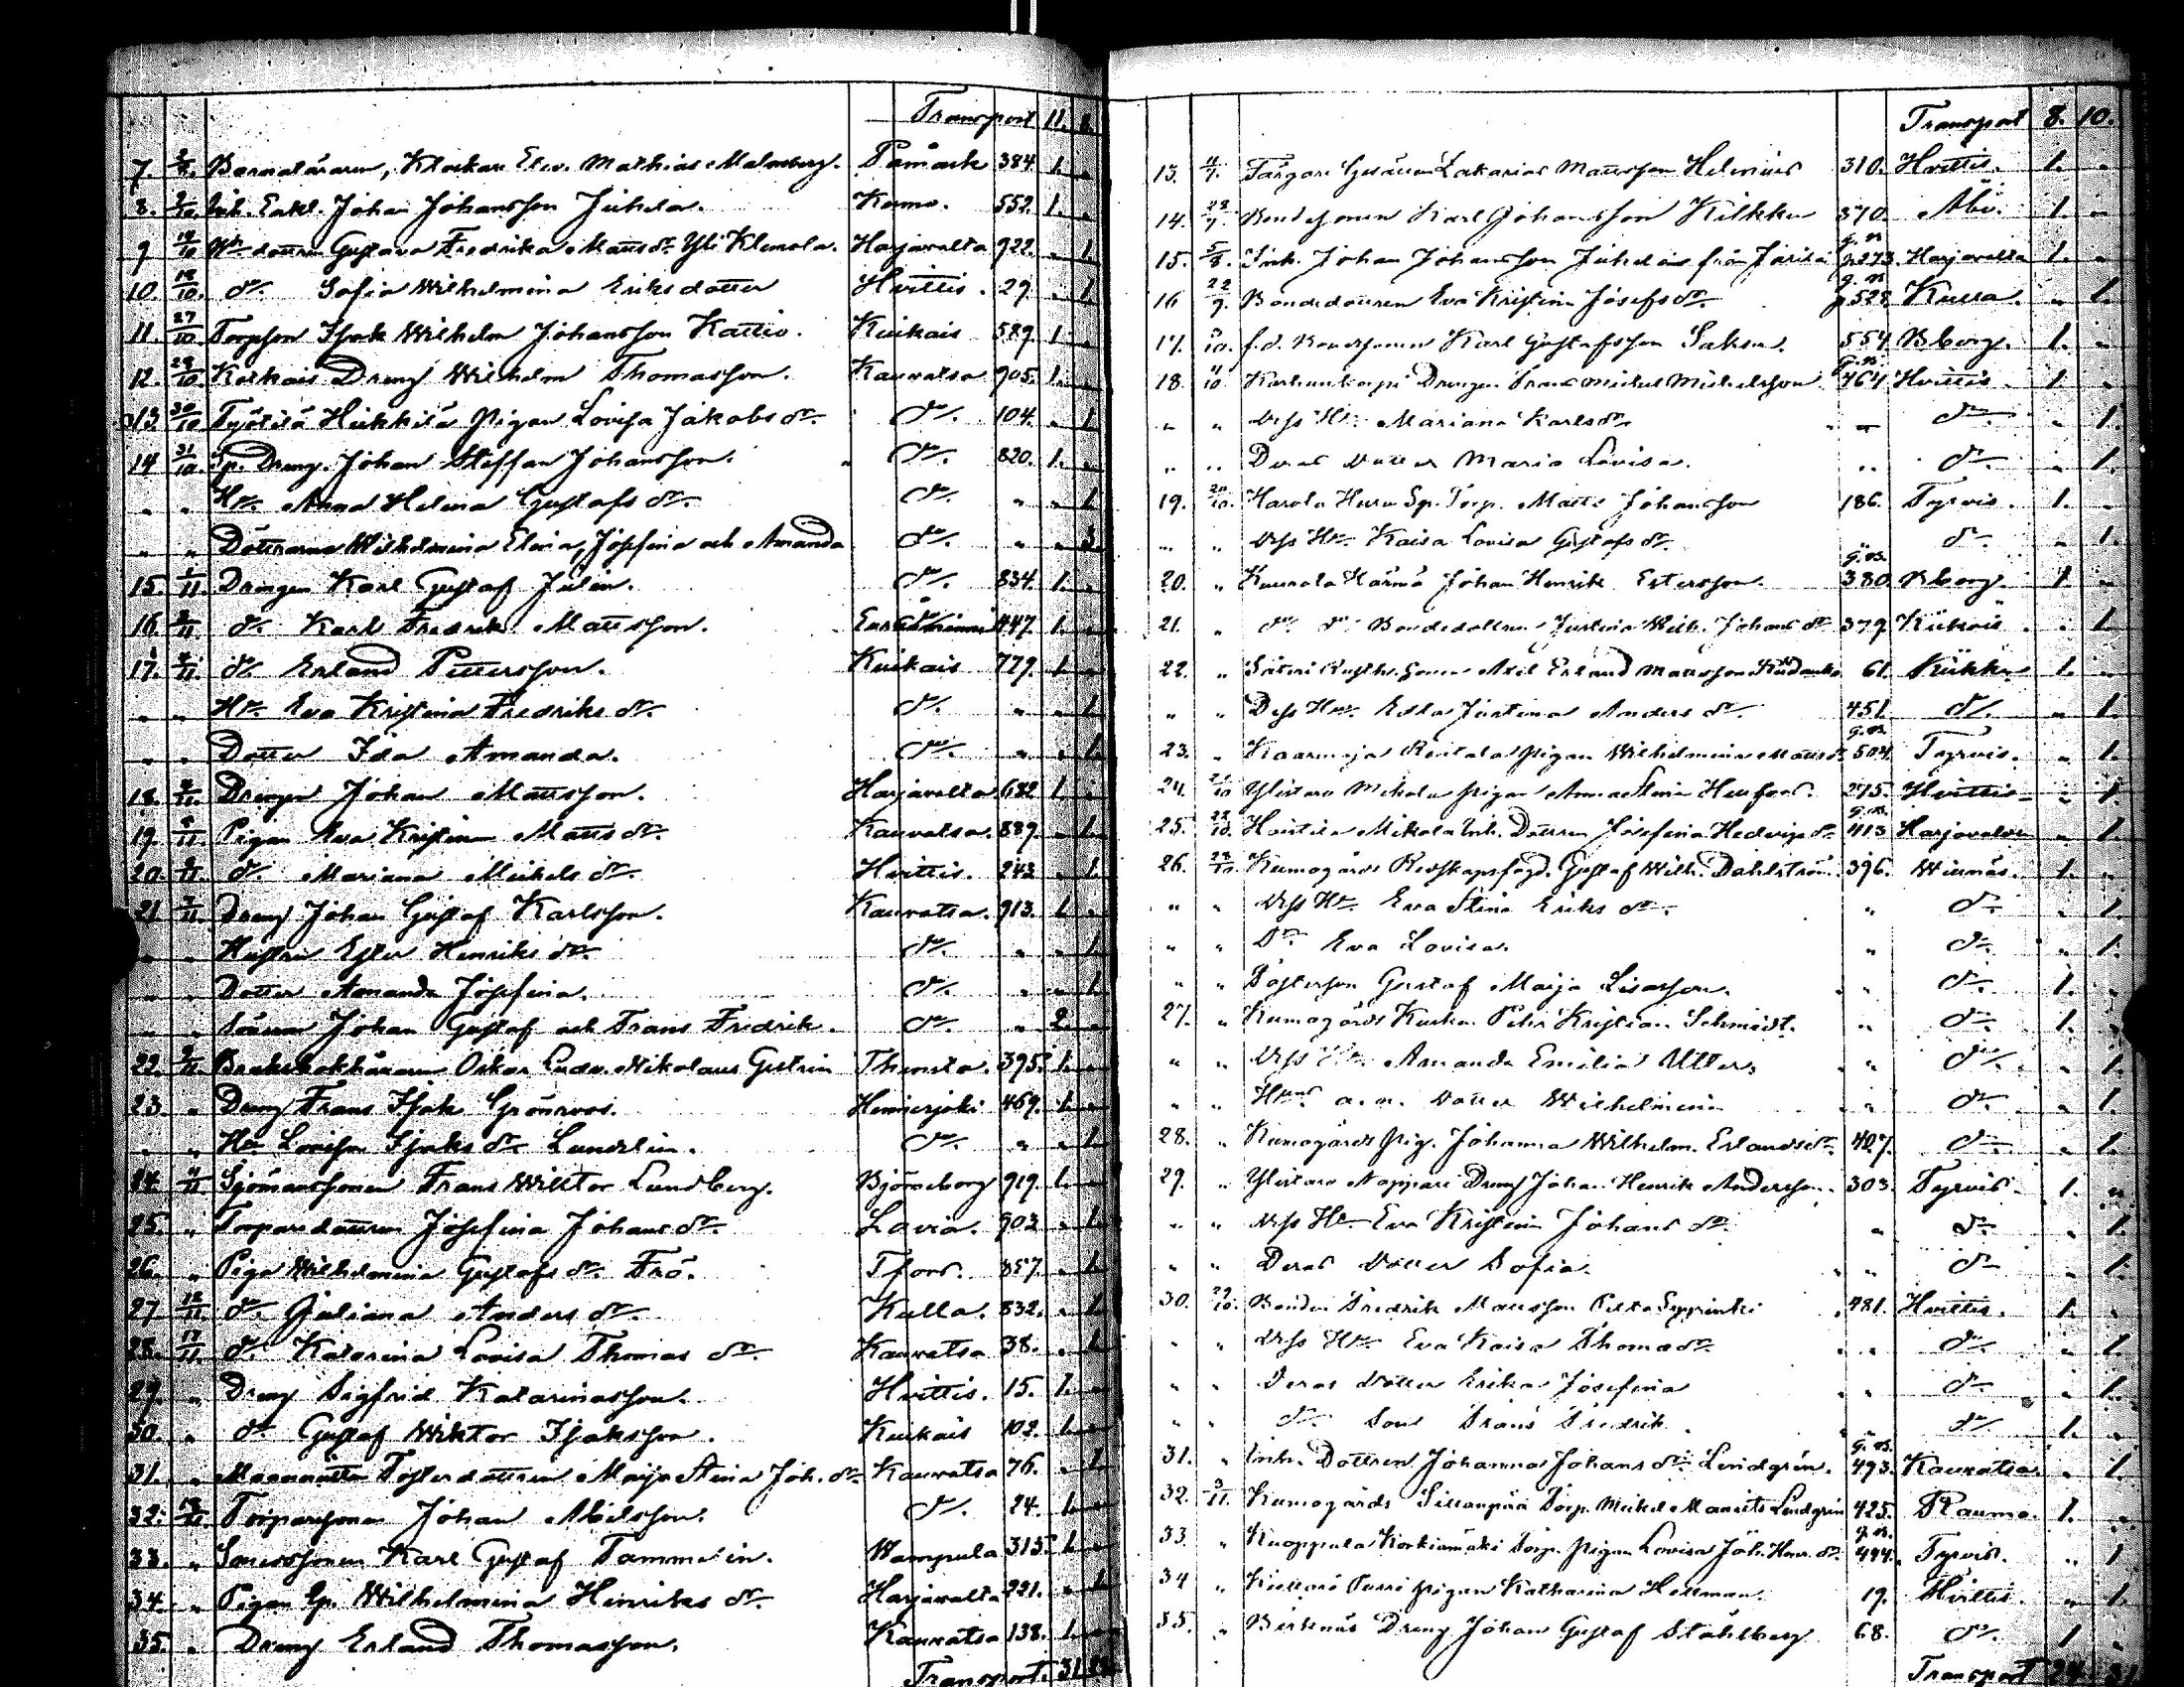 Transport 11. 8.
7. Barnaläraren, Klockare Elev. Mathias Malmberg. Påmark 384. 1. „
8. Inh. Enkl. Johan Johansson Juhela. Kumo. 552. 1. „
9. 14/10 dottren Gustava Fredrika Matts dr. Yli Klemola. Harjavalta 922. „ 1.
10. 18/10. do. Sofia Wilhelmina Eriksdotter Hvittis. 29. „ 1.
11. 27/10. Torpson Isak Wilhelm Johansson Kattio. Kiukais 589. 1. „
12. 29/10. Kotkais Dreng Wilhelm Thomasson. Kauvatsa 905. 1. „
13. 30/10 Työtilä Heikkilä Pigan Lovisa Jakobs dr. do. 104. „ 1.
14 31/10. Sp. Dreng. Johan Steffan Johansson. do. 820. 1. „
„ „ Hu. Anna Helena Gustafs dr. do. „ „ 1.
„ „ Döttrarna Wilhelmina Elvira, Josefina och Amanda do. „ „ 3.
15. 1/11. Drengen Karl Gustaf Julin. do. 834. 1. „
16. 2/11. do. Karl Fredrik Mattsson. 447. 1. „
17. 2/11. do. Erland Pettersson. Kiukais 779. 1. „
„ „ Hu. Eva Kristina Fredriks dr. do. „ „ 1.
„ „ Dotter Ida Amanda. do. „ „ 1.
18. Drengen Johan Mattsson. Harjavalta 682 1. „
19. Pigan Eva Kristina Matts dr. Kauvatsa. 889. „ 1.
20. do. Mariana Mickels dr. Hvittis. 243 „ 1.
21. Dreng Johan Gustaf Karlsson. Kauvatsa. 913. 1. „
„ „ Hustru Ester Henriks dr. do. „ „ 1.
„ „ Dotter Amanda Josefina. do. „ „ 1.
„ „ Söner Johan Gustaf och Frans Fredrik. do. „ 2. „
22. Bruksbokhållaren Oskar Ludv. Nikolaus Gestrin Thensta. 395. 1. „
23. „ Dreng Frans Isak Grönroos. Hinnerjoki 469. 1. „
„ „ Hu. Lovisa Isaks dr. Lundelin. do. „ „ 1.
24. Sjömanssonen Frans Wiktor Lundberg. Björneborg 919. 1. „
25. „ Torparedottren Josefina Johans dr. Lavia. 903 „ 1.
26. „ Piga Wilhelmina Gustafs dr. Frö. T.fors. 857. „ 1.
27 12/11. do. Juliana Anders dr. Kulla. 832. „ 1.
28. do. Katarina Lovisa Thomas dr. Kauvatsa 38. „ 1.
29. „ Dreng Sigfrid Katarinasson. Hvittis. 15. 1. „
30. „ do. Gustaf Wiktor Isaksson. Kiukais 102. 1. „
31. „ Fosterdottren Maija Stina Joh. dr. Kauvatsa 76. „ 1.
32. Torparesonen Johan Abelsson. do. 24. 1. „
33. „ Karl Gustaf Tammelin. Wampula 315. 1. „
34. „ Pigan Sp. Wilhelmina Hinriks dr. Harjavalta 221. „ 1.
35. „ Dreng Erland Thomasson. Kauvatsa 138. 1. „
Transport. 31.
Transport 8. 10.
13. Färgare Gesällen Zakarias Mattsson Helenius 310. Hvittis. 1. „
14. Bondesonen Karl Johansson Kilkku 370. Åbo. 1. „
15. 5/8. Inh. Johan Johansson Juhela från Järilä p273. Harjavalta 1. „
16 22/9. Bondedottren Eva Kristina Josefs dr. p528 Kulla. „ 1.
17. f. d. Bondesonen Karl Gustafsson Saksa. 554. B.borg. 1. „
18. Karhunkorpi Drengen Frans Mickel Mickelsson 464. Hvittis 1. „
„ „ Dess Hu. Mariana Karls dr. „ do. „ 1.
„ „ Deras Dotter Maria Lovisa. „ do. „ 1.
19. Harola Sp. Torp. Matts Johansson 186. Tyrvis. 1. „
„ „ Dess Hu. Kaisa Lovisa Gustafs dr. do. „ 1.
20. „ Kaurola Härmä Johan Henrik Estersson. 380. B.borg. 1. „
21. „ do. do. Bondedottren Justina Wilh. Johans dr. 379. Kiukais. „ 1.
22. „ Säteri Rusth. sonen Axel Erland Mattsson 61. 1. „
„ „ Dess Hu. Edla Justina Anders dr. 451. do. „ 1.
23. „ Kaarmaja Rentala pigan Wilhelmina Matts dr. 504. Tyrvis. „ 1.
24. Ylistaro Mikola pigan Anna Stina 275. Hvittis „ 1.
25. Mikola Inh. Dottren Josefina Hedvigs dr. 413 Harjavalta „ 1.
26. Kumogårds Redskapsfogd. Gustaf Wilh. Dahlström. 396. Wirmås. 1. „
„ „ Dess Hu. Eva Stina Eriks dr. „ do. „ 1.
„ „ Dr. Eva Lovisa. „ do. „ 1.
„ „ Fosterson Gustaf Maija Lisasson. „ do. 1. „
27. „ Kumogårds Kusken Petter Kristian Schmidt. „ do. 1. „
„ „ Dess Hu. Amanda Emilia Utter. „ do. „ 1.
„ „ Hus. o.ä. Dotter Wilhelmina „ do. „ 1.
28. „ Kumogårds Pig. Johanna Wilhelm. Erlands dr. 407. do. „ 1.
29. „ Ylistaro Nappari Dreng Johan Henrik Andersson. 303. Tyrvis. 1. „
„ „ Dess Hu. Eva Kristina Johans dr. „ do. „ 1.
„ „ Deras Dotter Sofia. „ do. „ 1.
30. 29/10. Bonden Fredrik Mattsson 481. Hvittis. 1. „
„ „ Dess Hu. Eva Kaisa Thomas dr. „ do. „ 1.
„ „ Deras Dotter Erika Josefina „ do. „ 1.
„ „ do. Son Frans Fredrik „ do. 1. „
31. „ Inh. Dottren Johanna Johans dr. Lindgrén. 493. Kauvatsa. „ 1.
32. Kumogårds Sillanpää Torp. Mickel Maurits Lindgrén 425. Raumo. 1. „
33. „ Kuoppala Korkiamäki Torp. pigan Lovisa Joh. Henr. dr. 494. Tyrvis. „ 1
34 „ pigan Katharina Hellman. 19. Hvittis. „ 1.
35. „ Dreng Johan Gustaf Ståhlberg 68. do. 1 „
Transport 24. 31